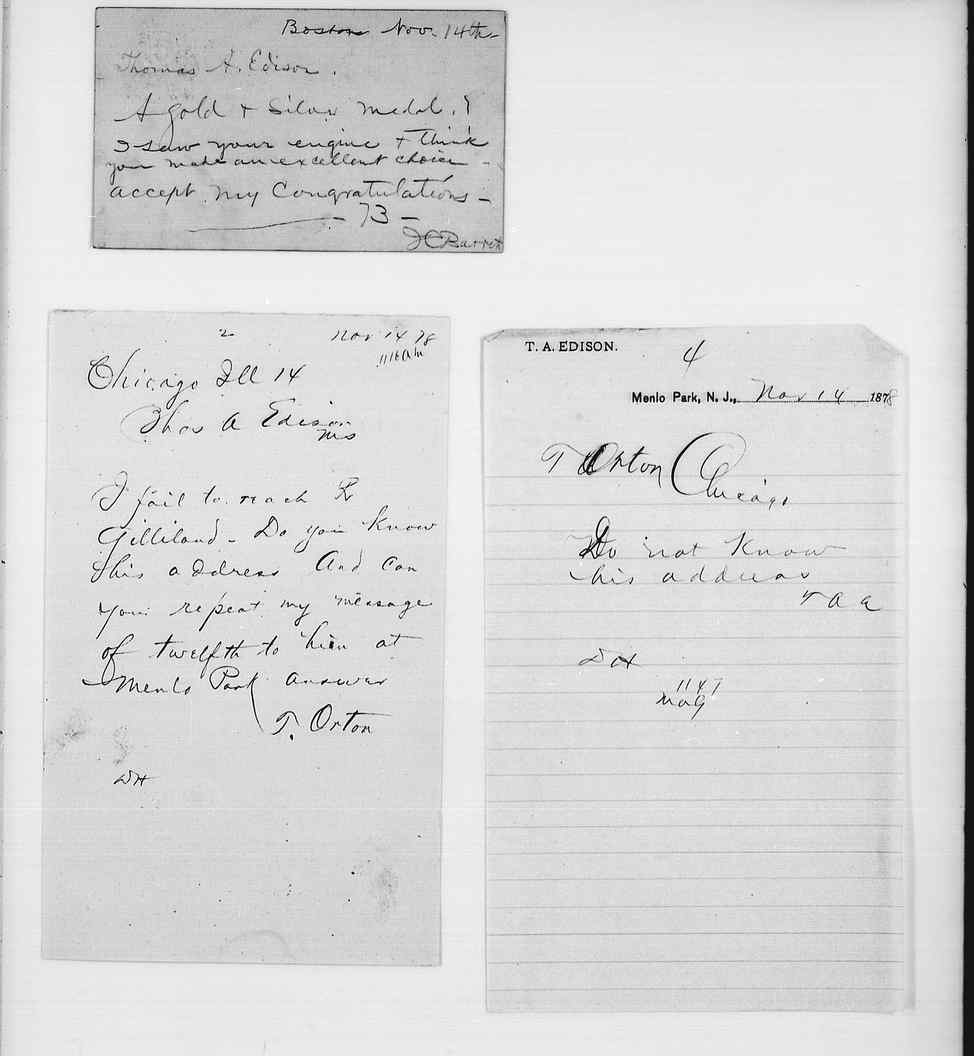 Boston Nov. 14th
Thomas A. Edison.
A gold + Silver medal.!
I saw your engine + think
you made an excellent choice -
accept my Congratulations -
- 73 -
J C Barrett
2
Nov 14 78
1116am
Chicago Ill 14
Thos A Edison
I fail to reach R
Gilliland - Do you know
his address And can
you repeat my message
of twelfth to him at
Menlo Park answer
T. Orton
DH
T. A. EDISON.
4
Menlo Park, N. J., Nov 14 1878
T Orton Chicago
Do not Know
his address
T A E
DH
1147